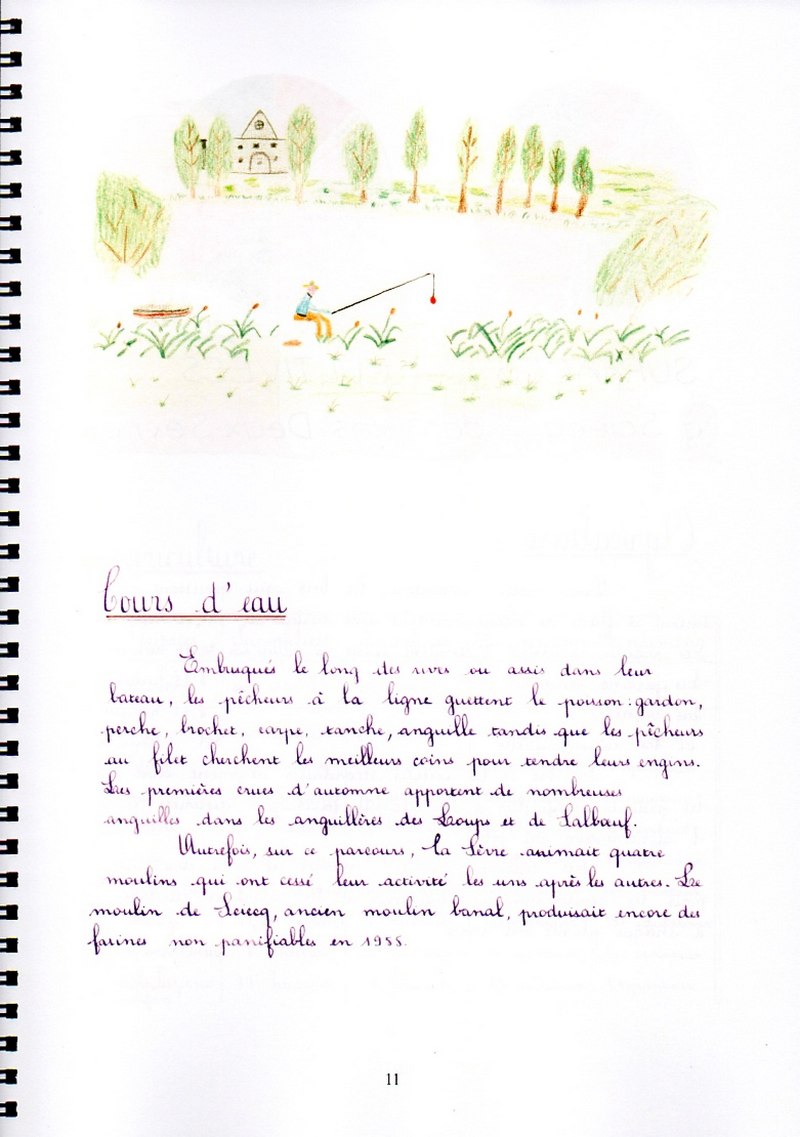 Cours d'eau
Embusqués le long des rives ou assis dans leur
bateau, les pêcheurs à la ligne guettent le poisson : gardon,
perche, brochet, carpe, tanche, anguille tandis que les pêcheurs
au filet cherchent les meilleurs coins pour tendre leurs engins.
Les premières crues d'automne apportent de nombreuses
anguilles dans les anguillères des Loups et de Salbœuf.
Autrefois, sur ce parcours, la Sèvre animait quatre
moulins qui ont cessé leur activité les uns après les autres. Le
moulin de Sciecq, ancien moulin banal, produisait encore des
farines non panifiables en 1988.
11